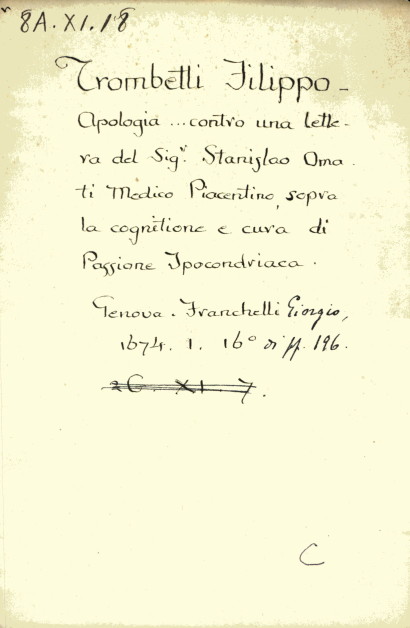 8A.XI.18
Trombetti Filippo -
Apologia ... contro una lette-
ra del Sigr. Stanislao Oma-
ti Medico Piacentino, sopra
la cognitione e cura di
Passione Ipocondriaca.
Genova. Franchelli Giorgio,
1674. 1. 16° di ff. 196.
26. XI. 7.
C